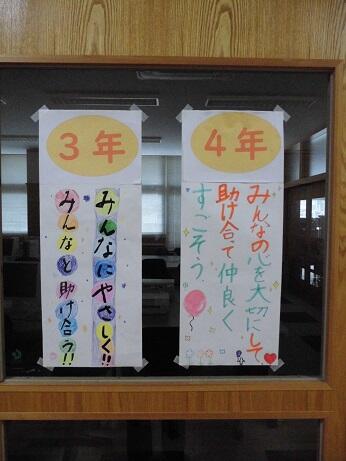 3年
みんなにやさしく!!
みんなと助け合う!!
4年
みんなの心を大切にして
助け合って仲良く
すごそう